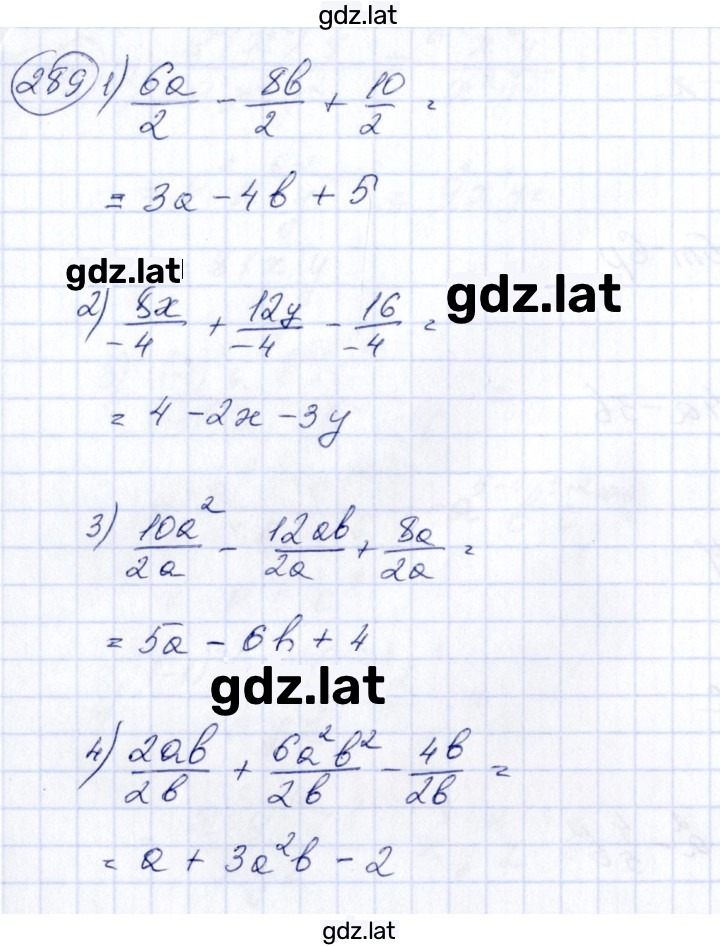 gdz.lat
289 1) 6a/2 - 8b/2 + 10/2 =
= 3a - 4b + 5
gdz.lat
2) 8x/-4 + 12y/-4 - 16/-4 =
gdz.lat
= 4 - 2x - 3y
3) 10a²/2a - 12ab/2a + 8a/2a =
= 5a - 6b + 4
gdz.lat
4) 2ab/2b + 6a²b²/2b - 4b/2b =
= a + 3a²b - 2
gdz.lat